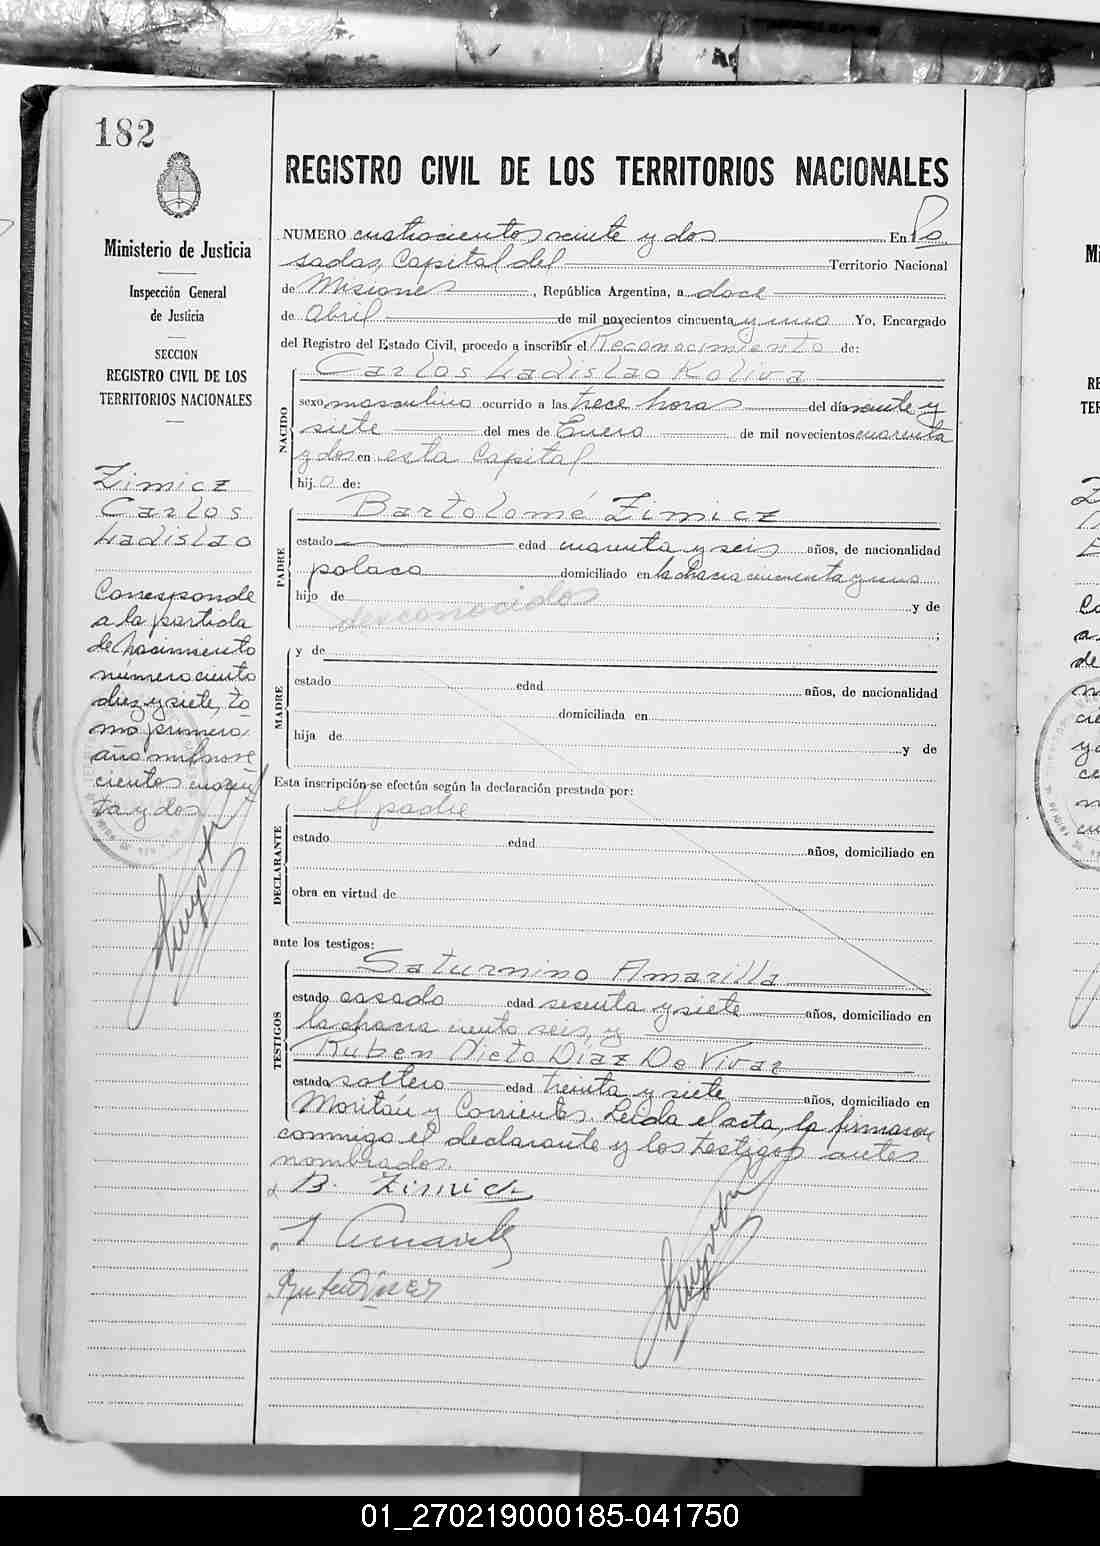 182
Ministerio de Justicia
Inspección General
de Justicia
SECCION
REGISTRO CIVIL DE LOS
TERRITORIOS NACIONALES
Zimicz
Carlos
Ladislao
Corresponde
a la partida
de nacimiento
número ciento
diez y siete, to
mo primero,
año mil nove
cientos cuaren
ta y dos
REGISTRO CIVIL DE LOS TERRITORIOS NACIONALES
NUMERO cuatrocientos veinte y dos En Po
sadas, Capital del Territorio Nacional
de Misiones, República Argentina, a doce
de Abril de mil novecientos cincuenta y uno Yo, Encargado
del Registro del Estado Civil, procedo a inscribir el Reconocimiento de:
Carlos Ladislao Koliva
NACIDO
sexo masculino ocurrido a las trece horas del día veinte y
siete del mes de Enero de mil novecientos cuarenta
y dos en esta Capital
hijo de:
PADRE
Bartolomé Zimicz
estado edad cuarenta y seis años, de nacionalidad
polaca domiciliado en la chacra cincuenta y uno
hijo de y de
desconocidos
MADRE
y de
estado edad años, de nacionalidad
domiciliada en
hija de y de
Esta inscripción se efectúa según la declaración prestada por:
el padre
DECLARANTE
estado edad años, domiciliado en
obra en virtud de
ante los testigos:
TESTIGOS
Saturnino Amarilla
estado casado edad sesenta y siete años, domiciliado en
la chacra ciento seis, y
Ruben Nieto Diaz De Vivar
estado soltero edad treinta y siete años, domiciliado en
Moritán y Corrientes. Leída el acta, la firmaron
conmigo el declarante y los testigos antes
nombrados.
B. Zimicz
01_270219000185-041750